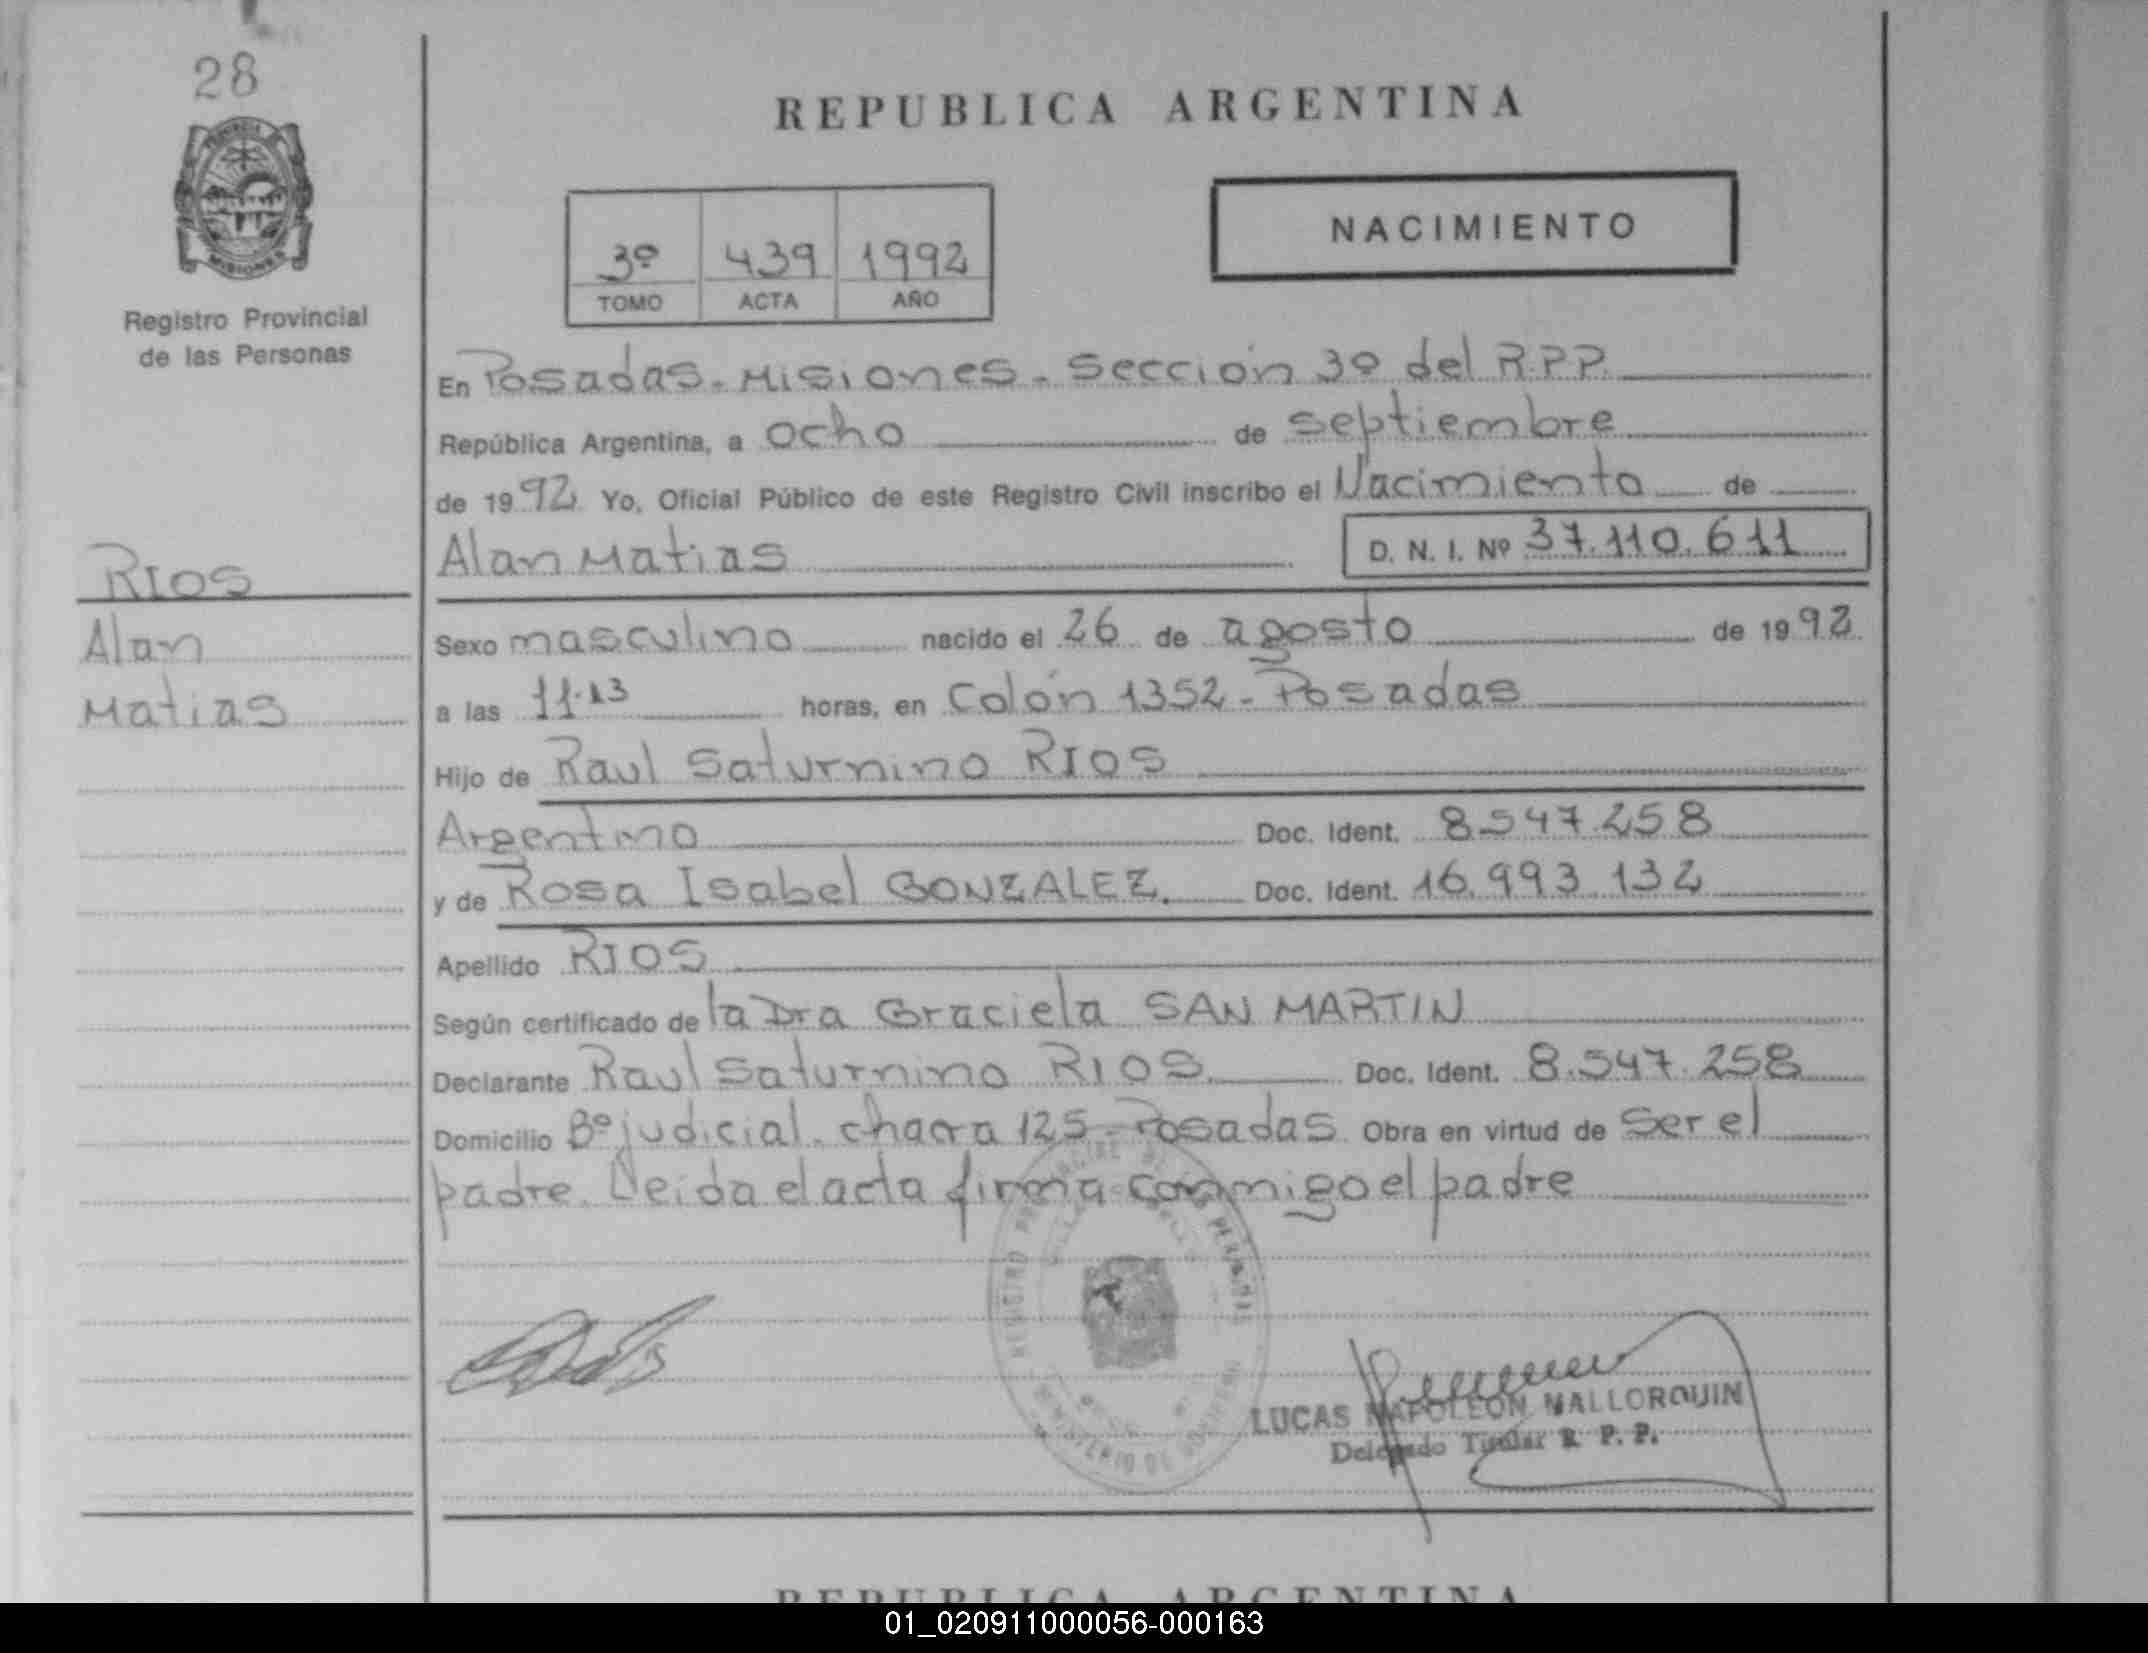 28
PROVINCIA
MISIONES
Registro Provincial
de las Personas
RIOS
Alan
Matias
REPUBLICA ARGENTINA
3º 439 1992
TOMO ACTA AÑO
NACIMIENTO
En Posadas - Misiones - Sección 3º del R.P.P.
República Argentina, a ocho de septiembre
de 1992 Yo, Oficial Público de este Registro Civil inscribo el Nacimiento de
Alan Matias D. N. I. Nº 37.110.611
Sexo masculino nacido el 26 de agosto de 1992
a las 11.13 horas, en Colón 1352 - Posadas
Hijo de Raul Saturnino RIOS
Argentino Doc. Ident. 8.547.258
y de Rosa Isabel GONZALEZ. Doc. Ident. 16.993.132
Apellido RIOS
Según certificado de la Dra Graciela SAN MARTIN
Declarante Raul Saturnino RIOS Doc. Ident. 8.547.258
Domicilio Bº judicial - chacra 125 - Posadas Obra en virtud de Ser el
padre. Leida el acta firma conmigo el padre
REGISTRO PROVINCIAL DE LAS PERSONAS
MINISTERIO DE GOBIERNO
LUCAS NAPOLEON MALLORQUIN
Delegado Titular R. P. P.
REPUBLICA ARGENTINA
01_020911000056-000163